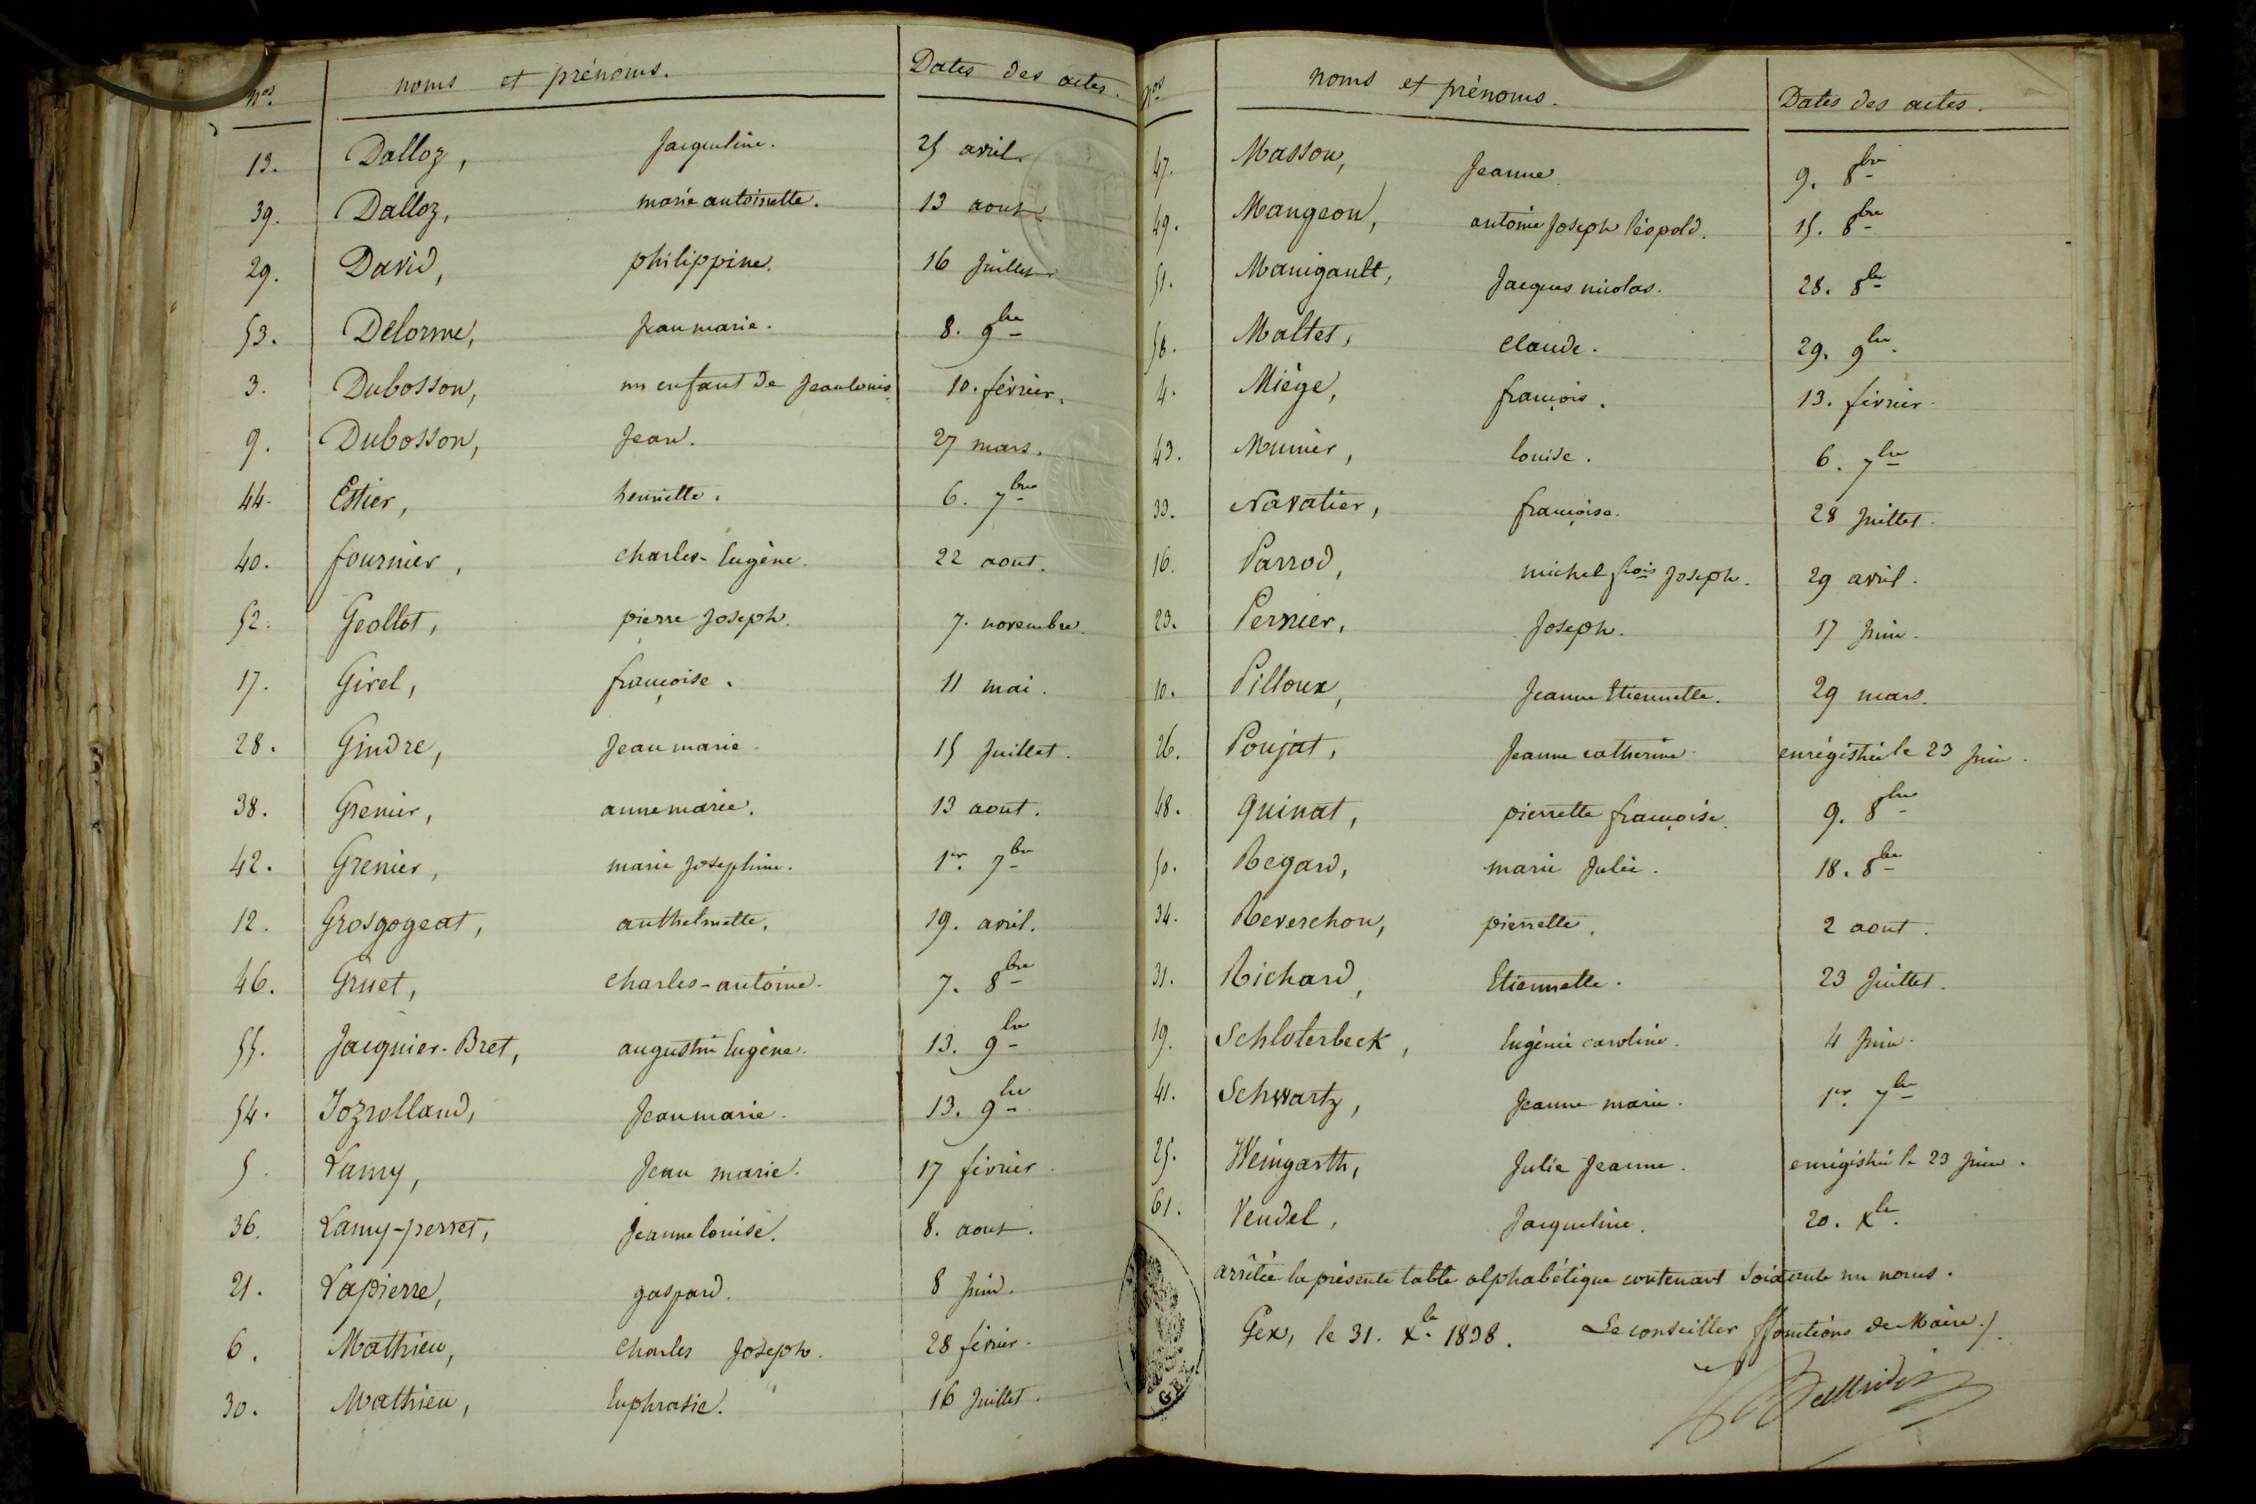 nos. noms et prénoms. Dates des actes.
13. Dalloz, Jacqueline. 25 avril
39. Dalloz, marie antoinette. 13 aout
29. David, philippine. 16 Juillet
53. Delorme, Jean marie. 8. 9bre
3. Dubosson, un enfant de Jean louis 10. février.
9. Dubosson, Jean. 27 mars.
44. Estier, henriette. 6. 7bre
40. fournier, charles-Eugène. 22 aout.
52. Geollot, pierre Joseph. 7. novembre.
17. Girel, françoise. 11 mai.
28. Gindre, Jean marie. 15 Juillet.
38. Grenier, anne marie. 13 aout.
42. Grenier, marie Josephine. 1er. 7bre
12. Grosgogeat, anthelmette. 19. avril.
46. Gruet, charles-antoine. 7. 8bre
55. Jacquier-Bret, augustin Eugène. 13. 9bre
54. Jozrolland, Jean marie. 13. 9bre
5. Lamy, Jean marie. 17 février
36. Lamy-perret, Jeanne louise. 8. aout.
21. Lapierre, gaspard. 8 Juin.
6. Mathieu, Charles Joseph. 28 février.
30. Mathieu, Euphrasie. 16 Juillet.
nos noms et prénoms. Dates des actes.
47. Masson, Jeanne. 9. 8bre
49. Mangeon, antoine Joseph léopold. 15. 8bre
51. Manigault, Jacques nicolas. 28. 8bre
58. Maltet, claude. 29. 9bre
4. Miège, françois. 13. février.
43. Munier, louise. 6. 7bre
33. Navatier, françoise. 28 Juillet.
16. Parrod, michel fcois Joseph. 29 avril.
23. Pernier, Joseph. 17 Juin.
10. Pilloux, Jeanne Etiennette. 29 mars.
26. Poujat, Jeanne catherine. enrégistrée le 23 Juin.
48. Quinat, pierrette françoise. 9. 8bre
50. Regard, marie Julie. 18. 8bre
34. Reverchon, pierrette. 2 aout.
31. Richard, Etiennette. 23 Juillet.
19. Schloterbeck, Eugénie caroline. 4 Juin.
41. Schwartz, Jeanne marie. 1er. 7bre
25. Weingarth, Julie Jeanne. enrégistrée le 23 Juin.
61. Vendel, Jacqueline. 20. Xbre
arrêtée la présente table alphabétique contenant Soixante un noms.
Gex, le 31. Xbre 1838. Le conseiller ffonctions de Maire./.
GEX